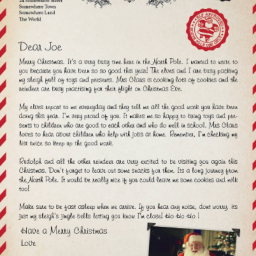 Somewhere Town
Somewhere Land
The World
Dear Joe
Merry Christmas. It's a very busy time here in the North Pole. I wanted to write to
you because you have been so so good this year! The elves and I are busy packing
my sleigh full of toys and presents. Mrs Claus is cooking lots of cookies and the
reindeer are busy practicing for their flight on Christmas Eve.
My elves report to me everyday and they tell me all the good work you have been
doing this year. I'm very proud of you. It makes me so happy to bring toys and pre-
sents to children who are good to each other and who do well in school. Mrs Claus
loves to hear about children who help with jobs at home. Remember, I'm checking my
list twice so keep up the good work.
Rudolph and all the other reindeer are very excited to be visiting you again this
Christmas. Don't forget to leave out some snacks for them. Its a long journey from
the North Pole. It would be really nice if you could leave me some cookies and milk
too!
Make sure to be fast asleep when we arrive. If you hear any noise, dont worry, its
just my sleigh's jingle bells letting you know I'm close! Ho ho ho !
Have a Merry Christmas
Love